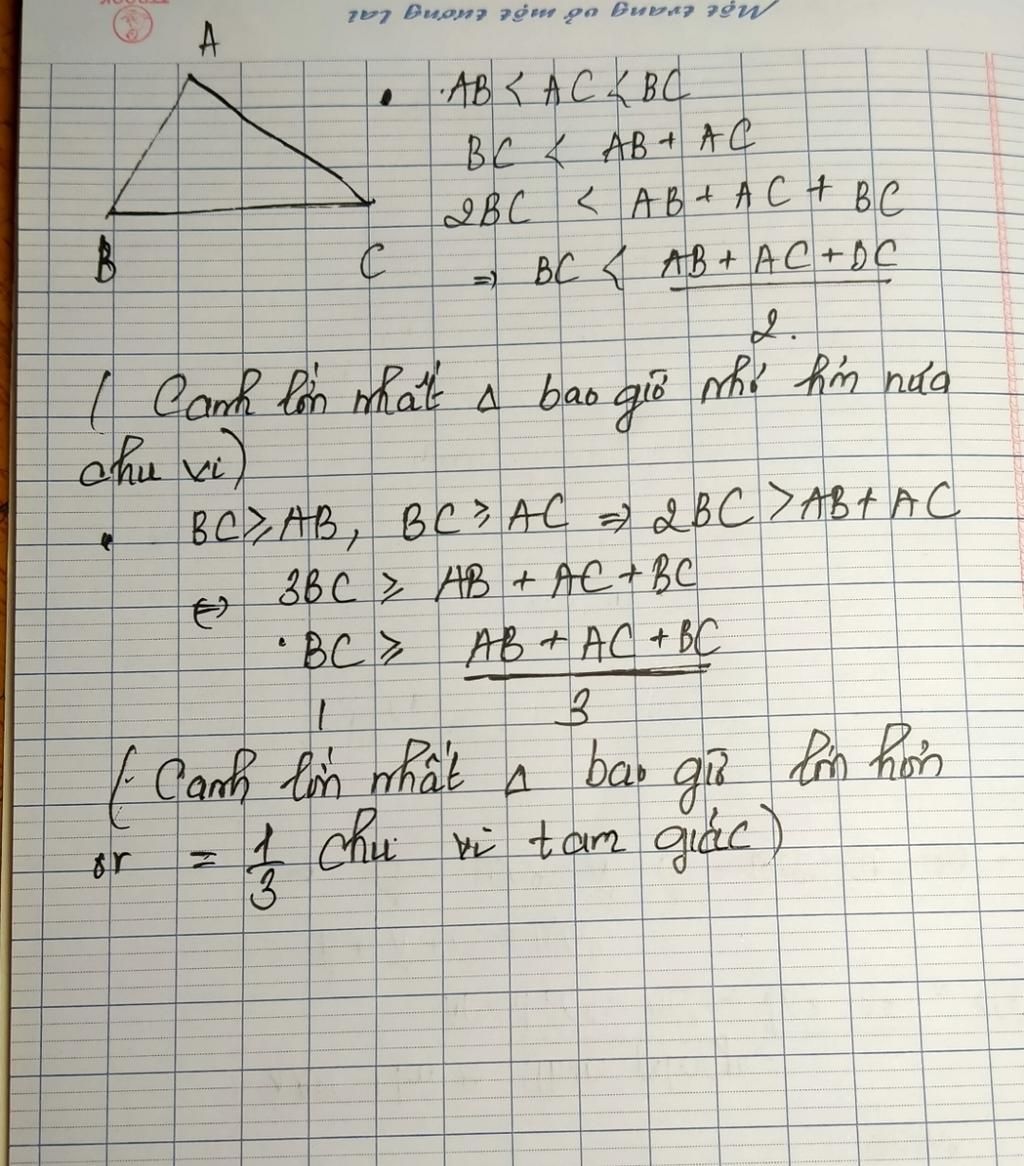 Một trang vở một tương lai
A
• AB < AC < BC
BC < AB + AC
2BC < AB + AC + BC
B C
⇒ BC < AB + AC + BC
2.
( Cạnh lớn nhất Δ bao giờ nhỏ hơn nửa
chu vi)
• BC ≥ AB, BC ≥ AC ⇒ 2BC > AB + AC
⇔ 3BC ≥ AB + AC + BC
• BC ≥ AB + AC + BC
3
( Cạnh lớn nhất Δ bao giờ lớn hơn
or = 1/3 chu vi tam giác)